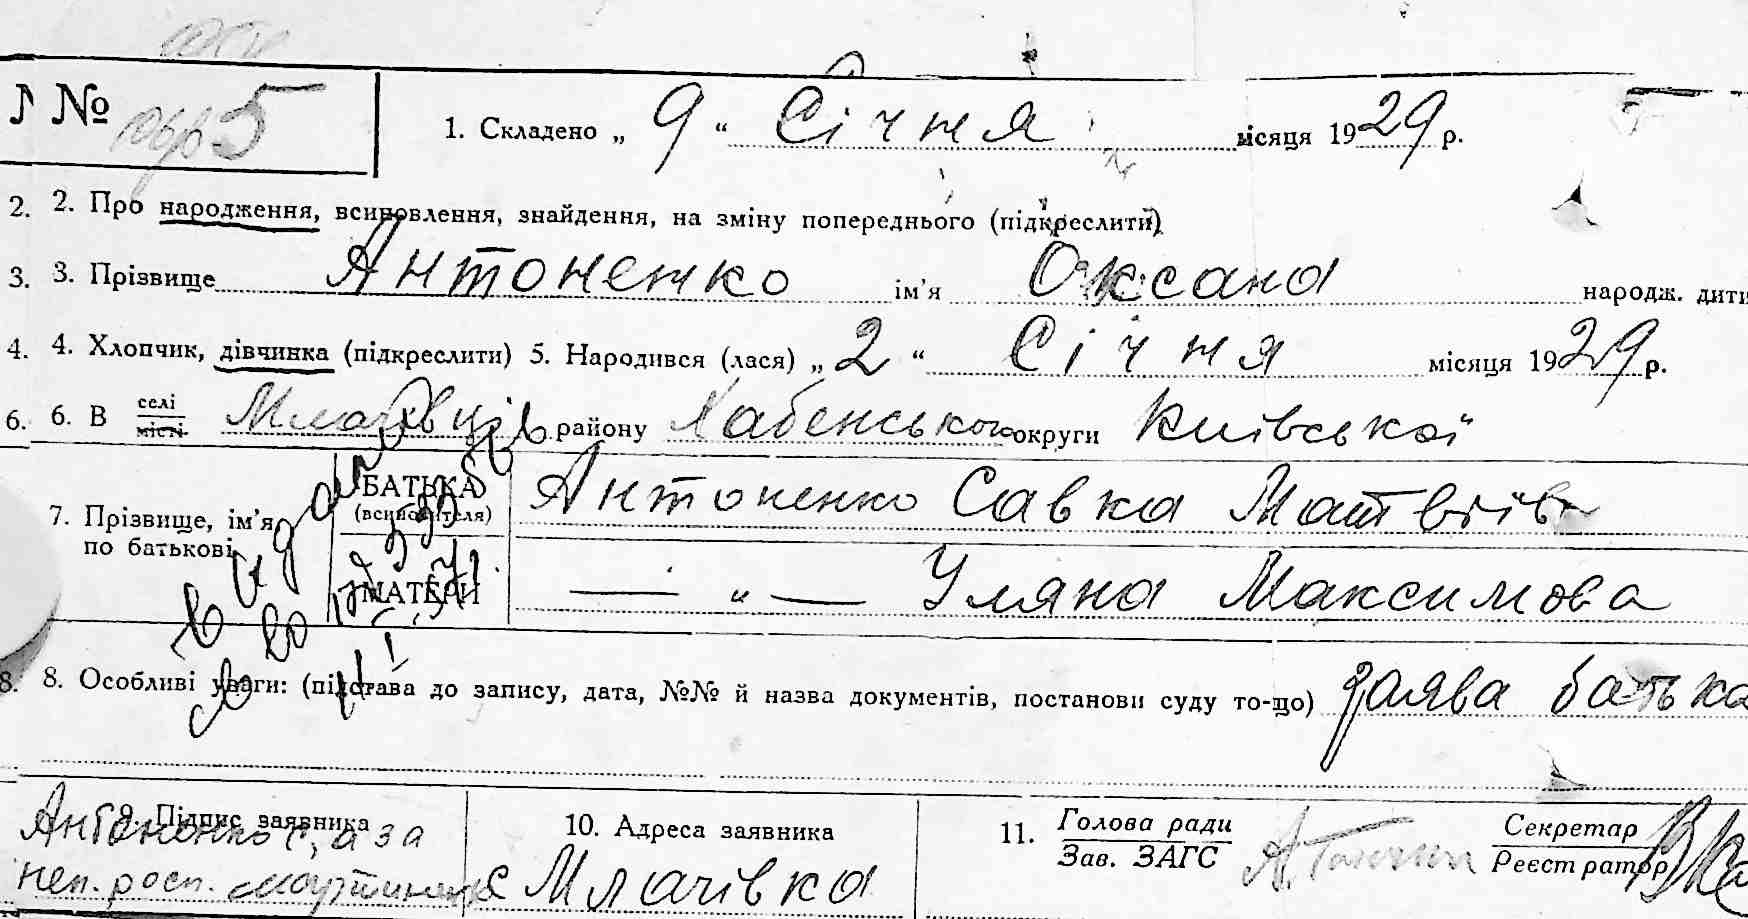 № 5
1. Складено „ 9 “ Січня місяця 1929 р.
2. 2. Про народження, всиновлення, знайдення, на зміну попереднього (підкреслити)
3. 3. Прізвище Антоненко ім’я Оксана народж. дити
4. 4. Хлопчик, дівчинка (підкреслити) 5. Народився (лася) „ 2 “ Січня місяця 1929 р.
6. 6. В селі місті Млачівці району Хабенського округи Київської
7. Прізвище, ім’я по батькові
БАТЬКА (всиновителя) Антоненко Савка Матвіїв
МАТЕРИ — „ — Уляна Максимова
8. 8. Особливі уваги: (підстава до запису, дата, №№ й назва документів, постанови суду то-що) заява батька
9. Підпис заявника
Антоненко С, а за
неп. росп.
10. Адреса заявника
с Млачівка
11. Голова ради
Зав. ЗАГС
Секретар
Реєстратор